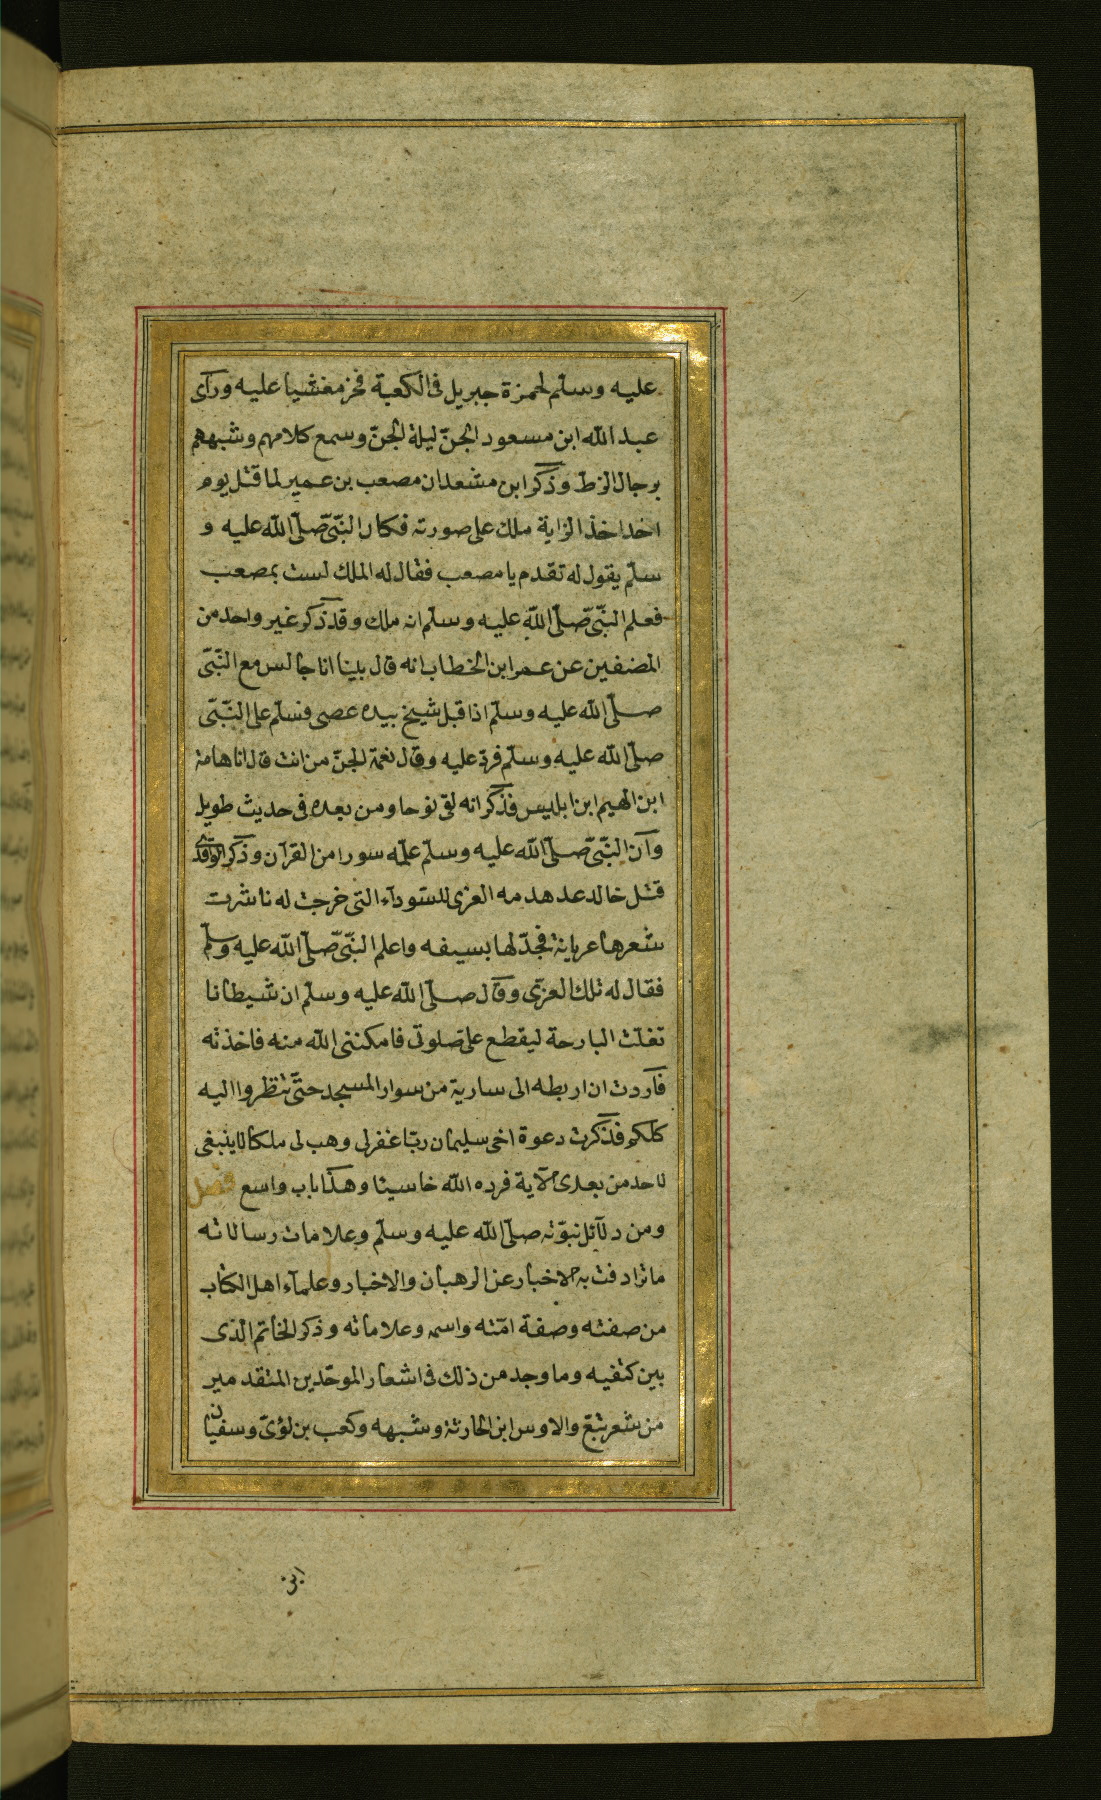 عليه وسلّم لحمزة جبريل فى الكعبة فخر مغشيا عليه ورآى
عبد الله ابن مسعود الجنّ ليلة الجنّ وسمع كلامهم وشبههم
برجال الزط وذكر ابن سعد ان مصعب بن عمير لما قتل يوم
احد اخذ الراية ملك على صورته فكان النّبىّ صلّى الله عليه و
سلّم يقول له تقدم يا مصعب فقال له الملك لست بمصعب
فعلم النّبىّ صلّى اللّه عليه وسلّم انه ملك وقد ذكر غير واحد من
المصنفين عن عمر ابن الخطاب انه قال بينا انا جالس مع النّبىّ
صلّى الله عليه وسلّم اذا قبل شيخ بيده عصى فسلّم على النّبىّ
صلّى الله عليه وسلّم فردّ عليه وقال نغمة الجنّ من انت قال انا هامة
ابن الهيم ابن ابليس فذكر انه لقى نوحا ومن بعده فى حديث طويل
وآن النّبىّ صلّى الله عليه وسلّم علّمه سورا من القرآن وذكر الواقدى
قتل خالد عند هدمه العزى للسّودآء التى خرجت له ناشرت
شعرها عريانة فجدّلها بسيفه واعلم النّبىّ صلّى الله عليه وسلّم
فقال له تلك العزّى وقال صلّى الله عليه وسلّم ان شيطانا
تفلّت البارحة ليقطع علىّ صلوتى فامكننى الله منه فاخذته
فآردت ان اربطه الى سارية من سوار المسجد حتّى تنظروا اليه
كلكم فذكرت دعوة اخى سليمان ربّ اغفرلى وهب لى ملكا لاينبغى
لاحد من بعدى الآية فرده الله خاسيئا وهكذا باب واسع فصل
ومن دلآئل نبوّته صلّى الله عليه وسلّم وعلامات رسالاته
ما ترادفت به الاخبار عن الرهبان والاحبار وعلمآء اهل الكتاب
من صفته وصفة امّته واسمه وعلاماته وذكر الخاتم الّذى
بين كتفيه وما وجد من ذلك فى اشعار الموحّدين المتقدمين
من شعر تبّع والاوس ابن الحارثة وشبهه وكعب بن لؤىّ وسفيان
ابن